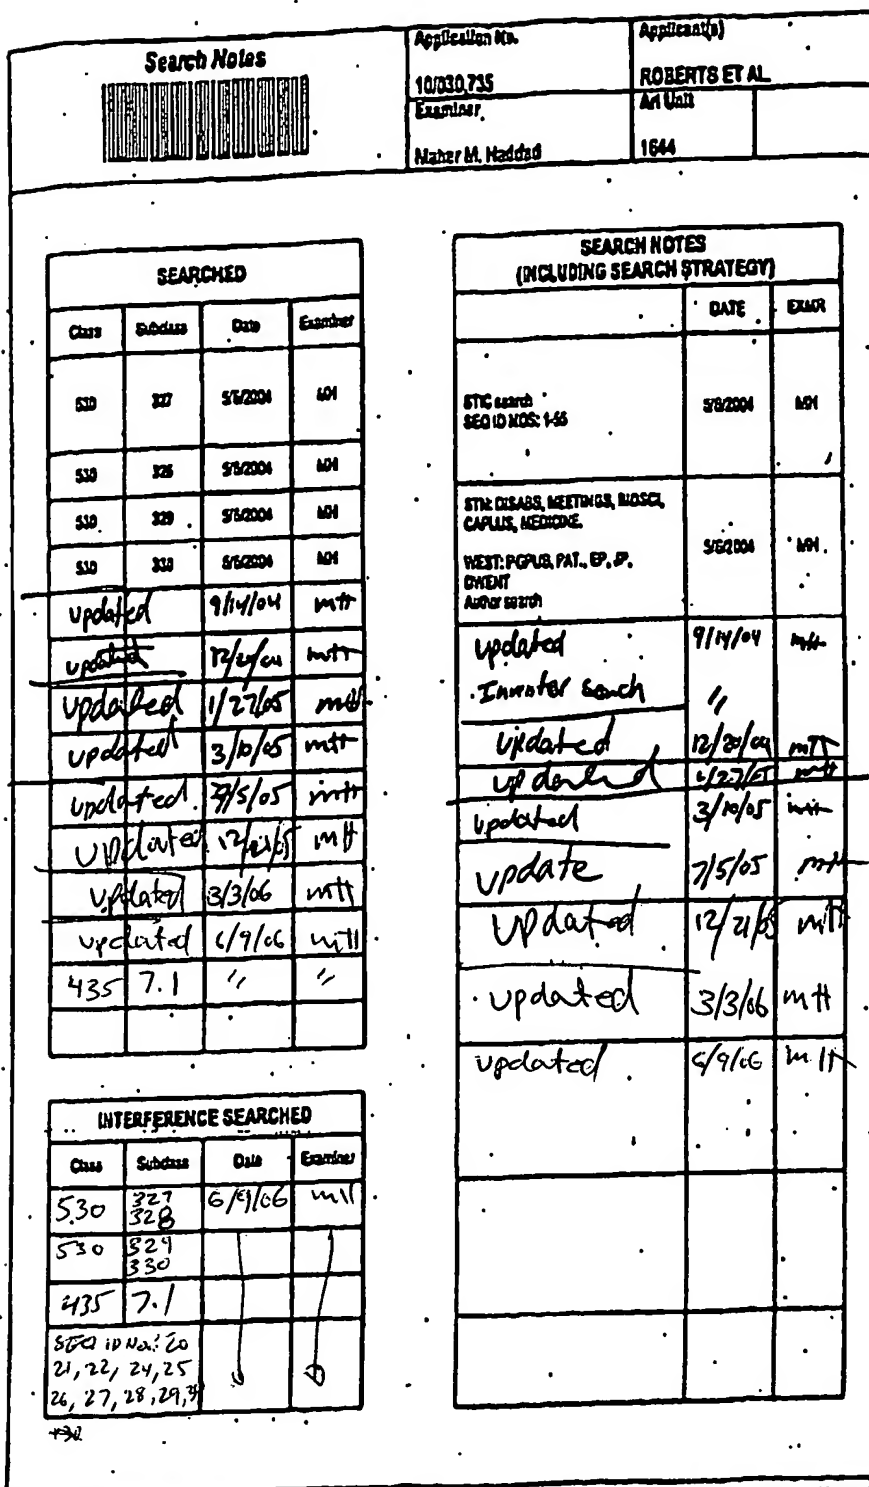 Search Notes
Application No.
Applicant(s)
10/030,735
ROBERTS ET AL.
Examiner
Art Unit
Maher M. Haddad
1644
SEARCHED
Class Subclass Date Examiner
530 327 5/6/2004 MH
530 5/6/2004 MH
530 329 5/6/2004 MH
530 330 5/6/2004 MH
updated 9/14/04 MH
updated 12/20/04 MH
updated 1/27/05 MH
updated 3/10/05 MH
updated 7/5/05 MH
updated 12/21/05 MH
updated 3/3/06 MH
updated 6/9/06 MH
435 7.1 " "
INTERFERENCE SEARCHED
Class Subclass Date Examiner
530 327 6/9/06 MH
328
530 329
330
435 7.1
SEQ ID No: 20
21, 22, 24, 25
26, 27, 28, 29,
SEARCH NOTES
(INCLUDING SEARCH STRATEGY)
DATE EXMR
STIC search
SEQ ID NOS: 1-55 MH
5/6/2004
STN: DISABS, MEETINGS, BIOSCI,
CAPLUS, MEDICINE.
5/6/2004 MH
WEST: PGPUB, PAT., EP, JP,
DWENT
Author search
updated 9/14/04 MH
Inventor Search "
updated 12/20/04 MH
updated 1/27/05 MH
updated 3/10/05 MH
update 7/5/05 MH
updated 12/21/05 MH
updated 3/3/06 MH
updated 6/9/06 MH